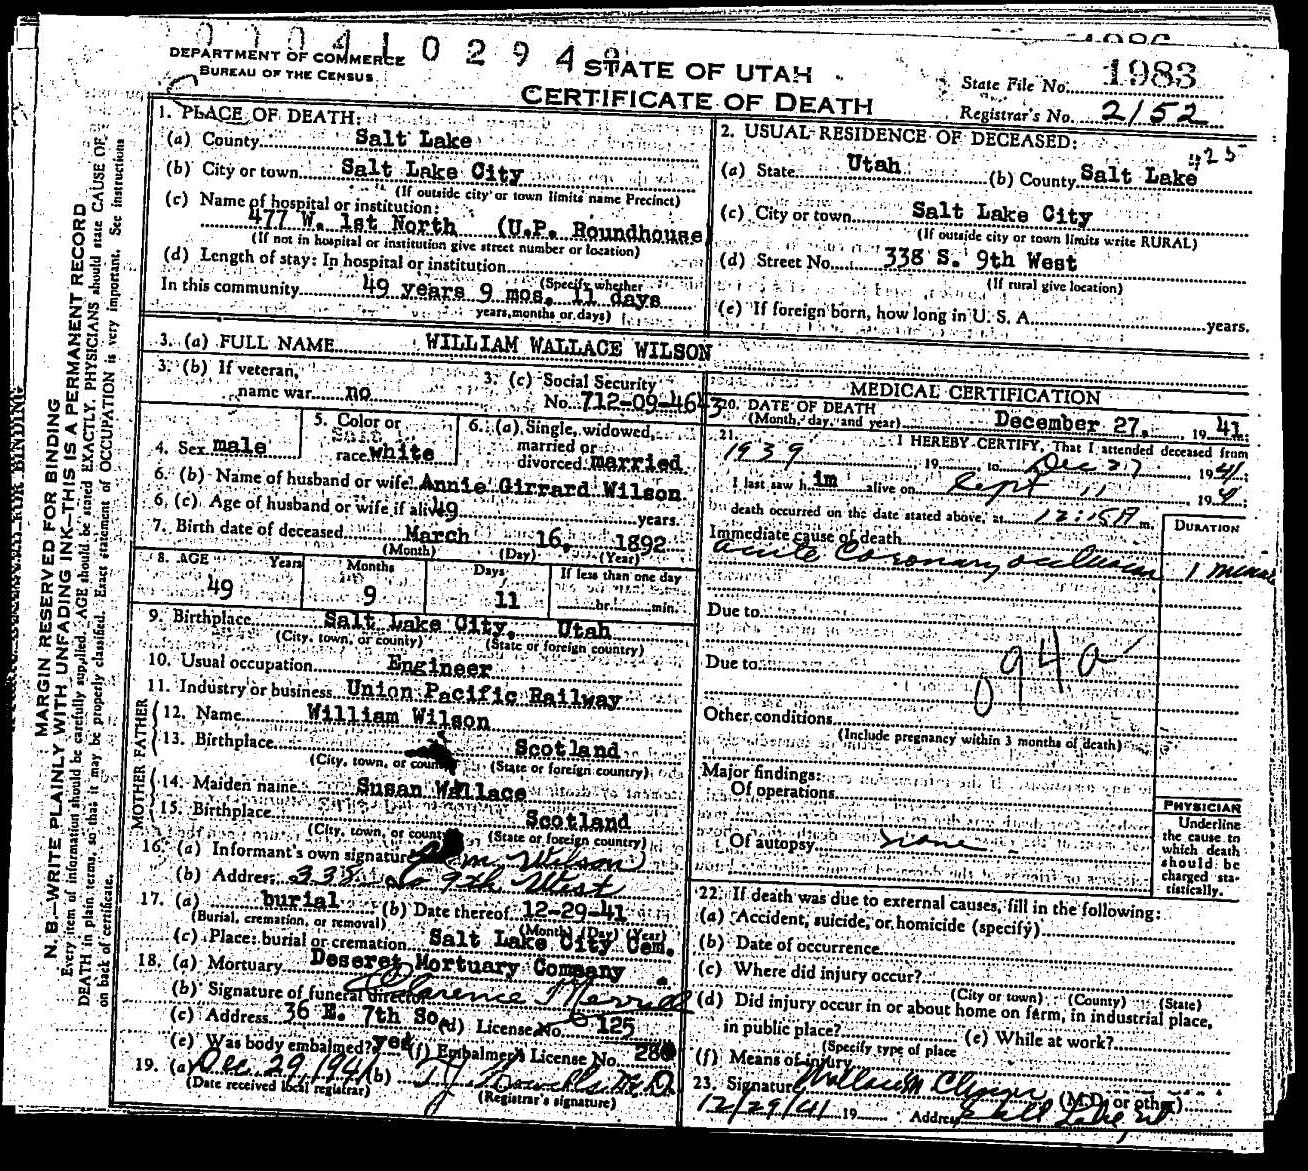 1986
0 1 0 4 1 0 2 9 4
DEPARTMENT OF COMMERCE
BUREAU OF THE CENSUS
STATE OF UTAH
CERTIFICATE OF DEATH
State File No. 1983
Registrar's No. 2152
1. PLACE OF DEATH:
(a) County Salt Lake
(b) City or town Salt Lake City
(If outside city or town limits name Precinct)
(c) Name of hospital or institution:
477 W. 1st North (U.P. Roundhouse
(If not in hospital or institution give street number or location)
(d) Length of stay: In hospital or institution
(Specify whether
In this community 49 years 9 mos. 11 days
years, months or days)
2. USUAL RESIDENCE OF DECEASED:
(a) State Utah (b) County Salt Lake
(c) City or town Salt Lake City
(If outside city or town limits write RURAL)
(d) Street No. 338 S. 9th West
(If rural give location)
(e) If foreign born, how long in U. S. A. years.
3. (a) FULL NAME WILLIAM WALLACE WILSON
3. (b) If veteran,
name war no
3. (c) Social Security
No. 712-09-4643
4. Sex male
5. Color or
race white
6. (a) Single, widowed,
married or
divorced married
6. (b) Name of husband or wife Annie Girrard Wilson
6. (c) Age of husband or wife if alive 49 years.
7. Birth date of deceased March 16, 1892
(Month) (Day) (Year)
8. AGE Years Months Days If less than one day
49 9 11 hr. min.
9. Birthplace Salt Lake City, Utah
(City, town, or county) (State or foreign country)
10. Usual occupation Engineer
11. Industry or business Union Pacific Railway
FATHER
12. Name William Wilson
13. Birthplace Scotland
(City, town, or county) (State or foreign country)
MOTHER
14. Maiden name Susan Wallace
15. Birthplace Scotland
(City, town, or county) (State or foreign country)
16. (a) Informant's own signature Wilson
(b) Address 338 So 9th West
17. (a) burial (b) Date thereof 12-29-41
(Burial, cremation, or removal) (Month) (Day) (Year)
(c) Place: burial or cremation Salt Lake City Cem.
18. (a) Mortuary Deseret Mortuary Company
(b) Signature of funeral director Clarence Merrill
(c) Address 36 E. 7th So. (d) License No. 125
(e) Was body embalmed? yes (f) Embalmer's License No. 280
19. (a) Dec. 29, 1941 (b) T.J. Howells M.D.
(Date received local registrar) (Registrar's signature)
MEDICAL CERTIFICATION
20. DATE OF DEATH
(Month, day, and year) December 27, 1941
21. I HEREBY CERTIFY, That I attended deceased from
1939, 19 to Dec 27, 1941;
I last saw him alive on Sept 11 194
death occurred on the date stated above, at 12:15A m.
DURATION
Immediate cause of death
acute Coronary occlusion
Due to
Due to
094a
Other conditions
(Include pregnancy within 3 months of death)
Major findings:
Of operations
Of autopsy none
PHYSICIAN
Underline
the cause to
which death
should be
charged sta-
tistically.
22. If death was due to external causes, fill in the following:
(a) Accident, suicide, or homicide (specify)
(b) Date of occurrence
(c) Where did injury occur?
(City or town) (County) (State)
(d) Did injury occur in or about home on farm, in industrial place,
in public place? (e) While at work?
(Specify type of place
(f) Means of injury
23. Signature (M.D. or other)
12/29/41 19 Address Salt Lake
MARGIN RESERVED FOR BINDING
N. B.—WRITE PLAINLY WITH UNFADING INK—THIS IS A PERMANENT RECORD
Every item of information should be carefully supplied. AGE should be stated EXACTLY. PHYSICIANS should state CAUSE OF
DEATH in plain terms, so that it may be properly classified. Exact statement of OCCUPATION is very important. See instructions
on back of certificate.